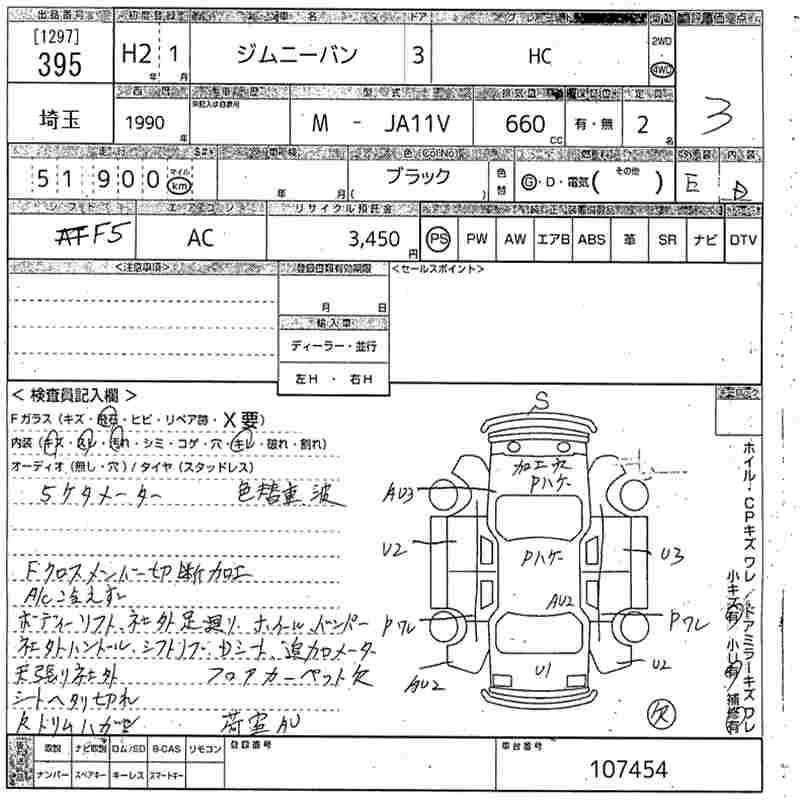 出品番号 初度登録 車名 ドア グレード 駆動 評価点
[1297]
395 H2年 1月 ジムニーバン 3 HC 2WD 4WD
西暦 車歴 型式 排気量 定員
未記入は自家用
埼玉 1990年 M - JA11V 660cc 有・無 2名 3
走行 車検 色(Col.No) 燃料 外装 内装
51900 マイル km 年 月 ( ブラック ) 色替 G・D・電気( その他 ) E D
シフト エアコン リサイクル預託金
AT F5 AC 3,450円 PS PW AW エアB ABS 革 SR ナビ DTV
<注意事項> 登録書類有効期限 <セールスポイント>
月 日
輸入車
ディーラー・並行
左H ・ 右H
<検査員記入欄>
Fガラス(キズ・飛石・ヒビ・リペア跡・X要)
内装(キズ・スレ・汚れ・シミ・コゲ・穴・キレ・破れ・割れ)
オーディオ(無し・穴)/タイヤ(スタッドレス)
5ケタメーター 色替車 波
Fクロスメンバー切断加工
A/C冷えず
ボディーリフト、社外足廻り、ホイール、バンパー
社外ハンドル、シフトノブ、Dシート、追加メーター
天張り社外 フロアカーペット欠
シートヘタリ切れ
トリムハガレ 荷室AU
S
加工穴
Pハゲ
AU3
U2 Pハゲ U3
AU2
Pワレ Pワレ
AU2 U1 U2
欠
ホイル・CPキズ ワレ/ドアミラーキズ ワレ
小キズ有 小U有 補修有
取説 ナビ取説 ロム/SD B-CAS リモコン 登録番号 車台番号
ナンバー スペアキー キーレス スマートキー 107454